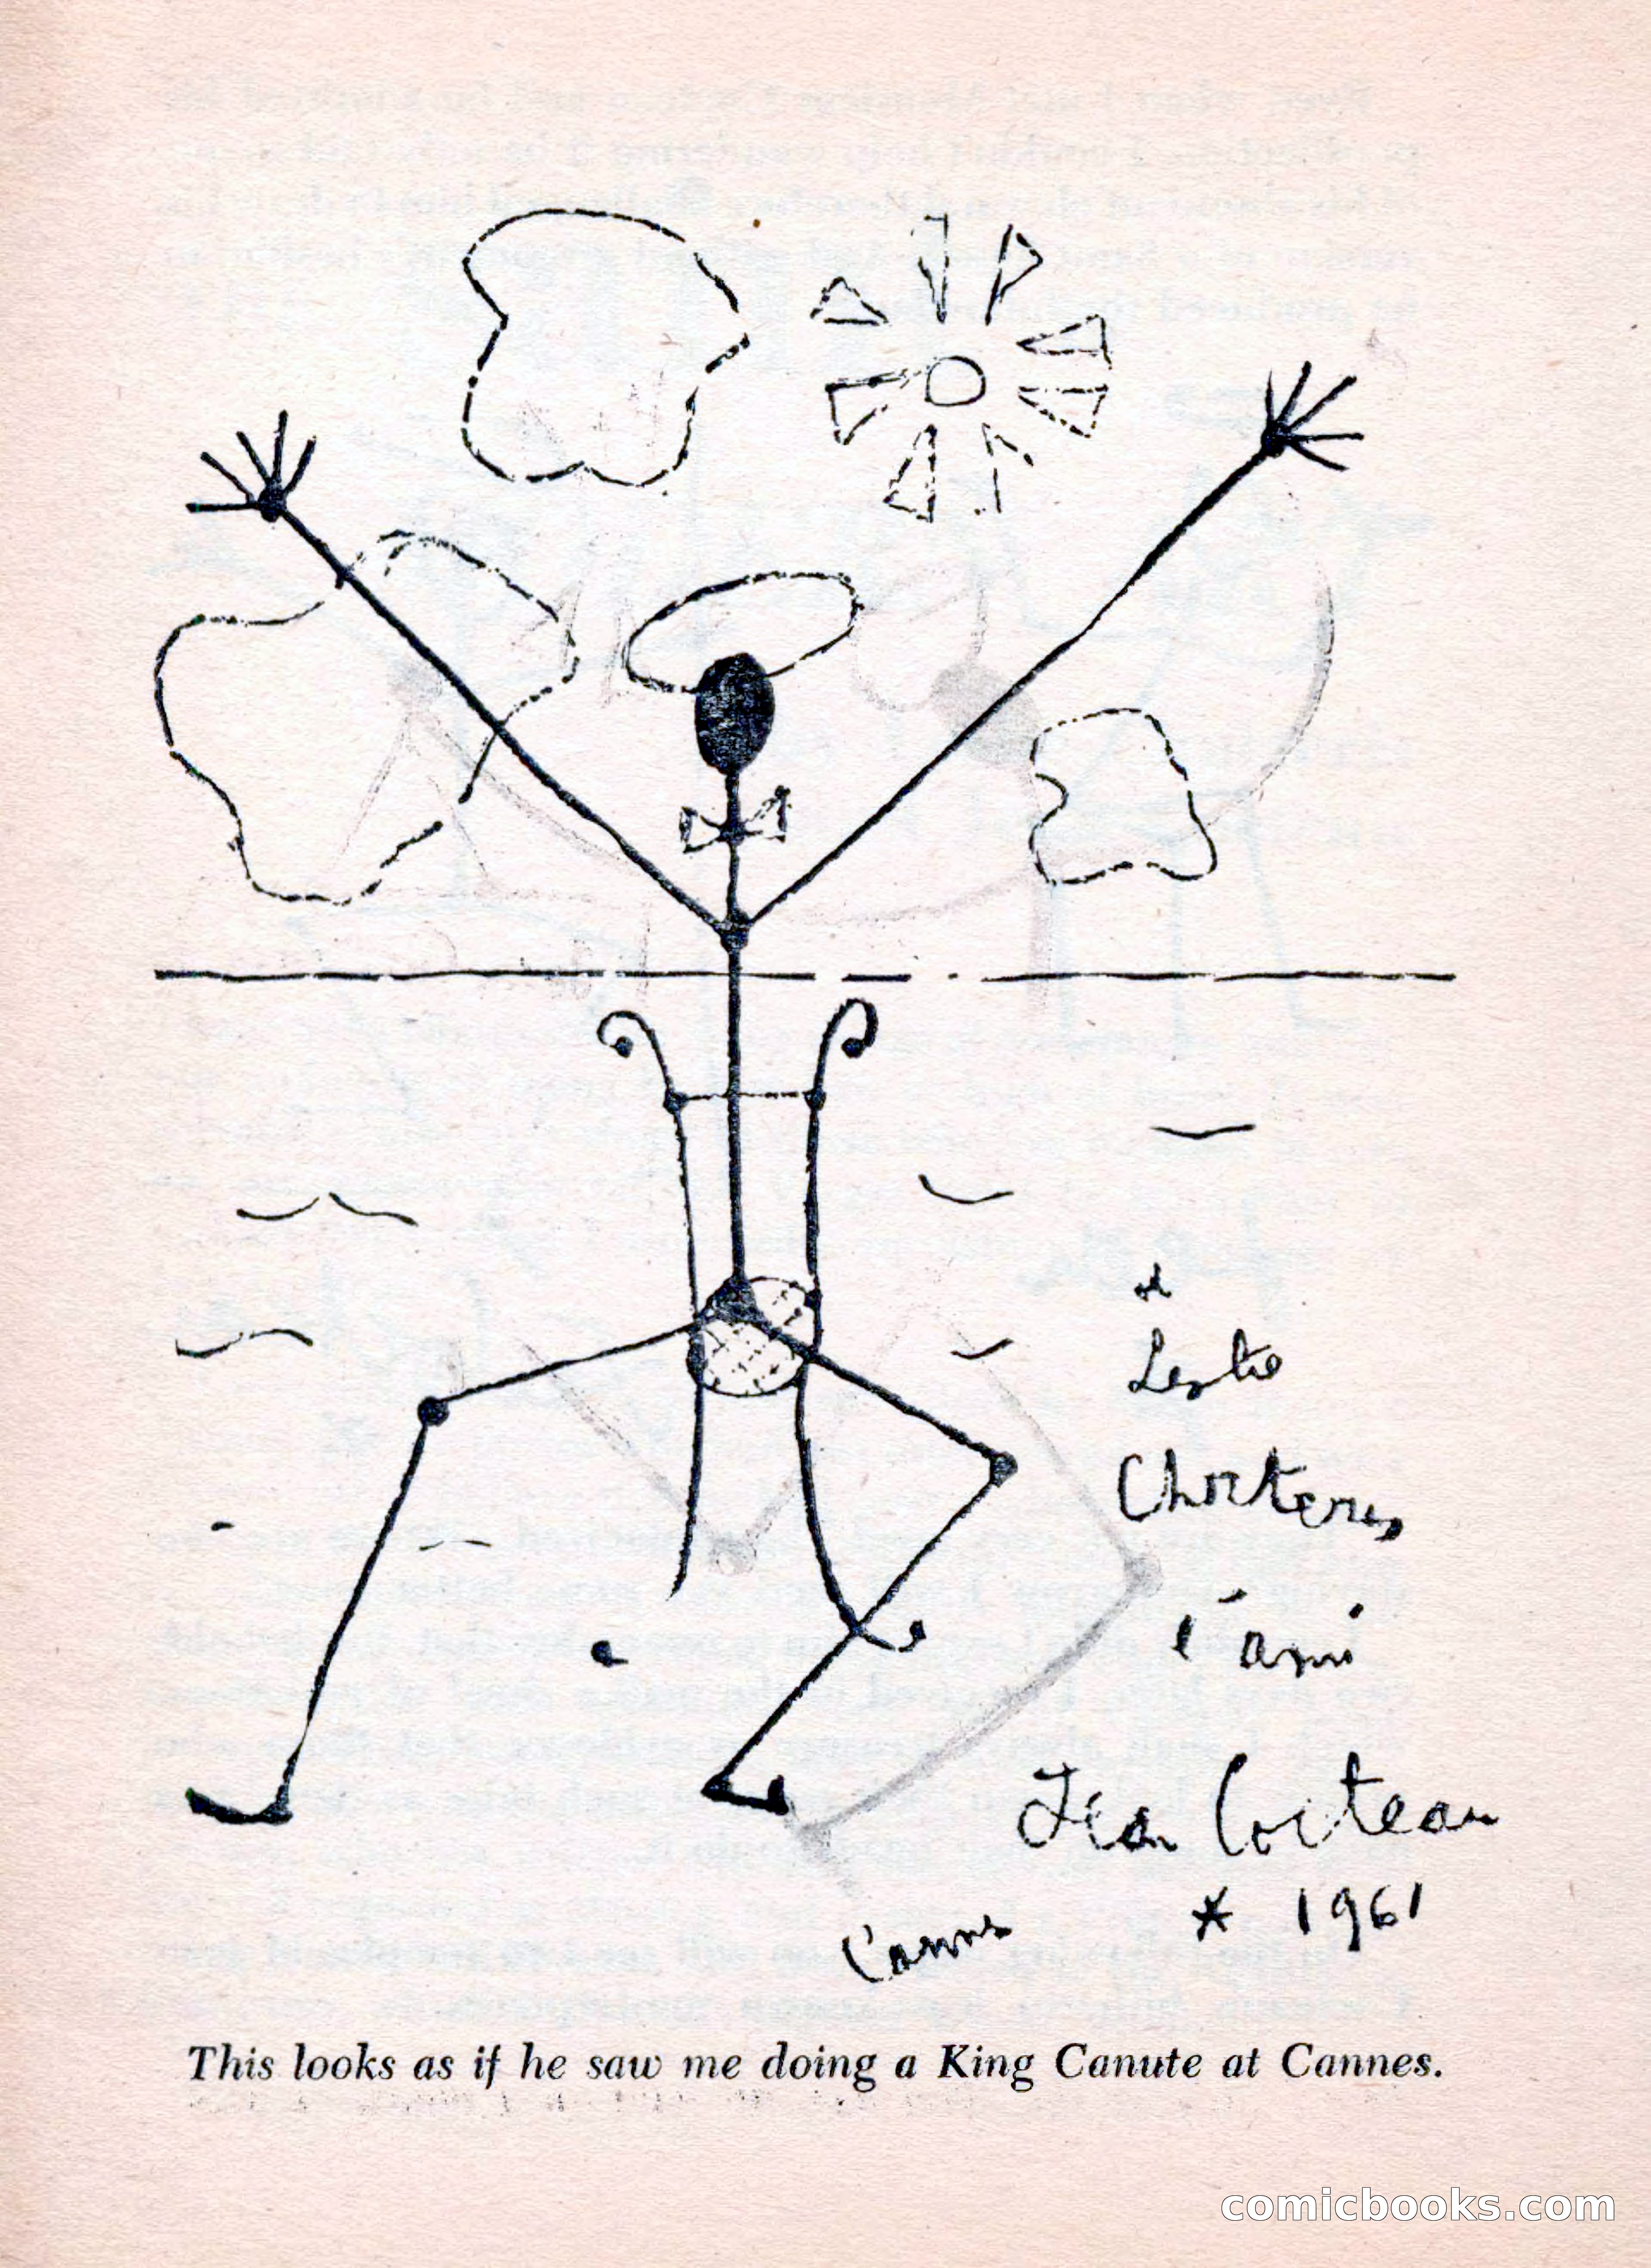 à
Leslie
Charteris
l'ami
Jean Cocteau
* 1961
Cannes
This looks as if he saw me doing a King Canute at Cannes.
comicbooks.com